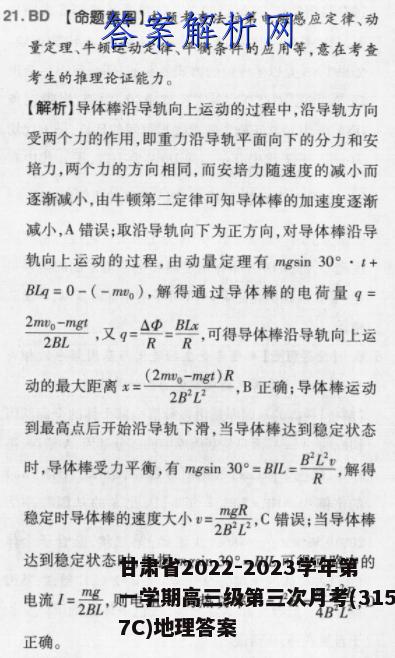 答案解析网
21. BD 【命题意图】本题考查法拉第电磁感应定律、动
量定理、牛顿运动定律、平衡条件的应用等,意在考查
考生的推理论证能力。
【解析】导体棒沿导轨向上运动的过程中,沿导轨方向
受两个力的作用,即重力沿导轨平面向下的分力和安
培力,两个力的方向相同,而安培力随速度的减小而
逐渐减小,由牛顿第二定律可知导体棒的加速度逐渐
减小,A 错误;取沿导轨向下为正方向,对导体棒沿导
轨向上运动的过程,由动量定理有 mgsin 30° · t+
BLq = 0 - ( - mv₀ ) , 解得通过导体棒的电荷量 q =
(2mv₀-mgt)/(2BL) ,又 q = ΔΦ/R = BLx/R ,可得导体棒沿导轨向上运
动的最大距离 x = (2mv₀-mgt)R/(2B²L²) ,B 正确;导体棒运动
到最高点后开始沿导轨下滑,当导体棒达到稳定状态
时,导体棒受力平衡,有 mgsin 30° = BIL = B²L²v/R ,解得
稳定时导体棒的速度大小 v = mgR/(2B²L²) ,C 错误;当导体棒
达到稳定状态时
电流 I = mg/(2BL) ,则电
正确。
甘肃省2022-2023学年第
一学期高三级第三次月考(315
7C)地理答案